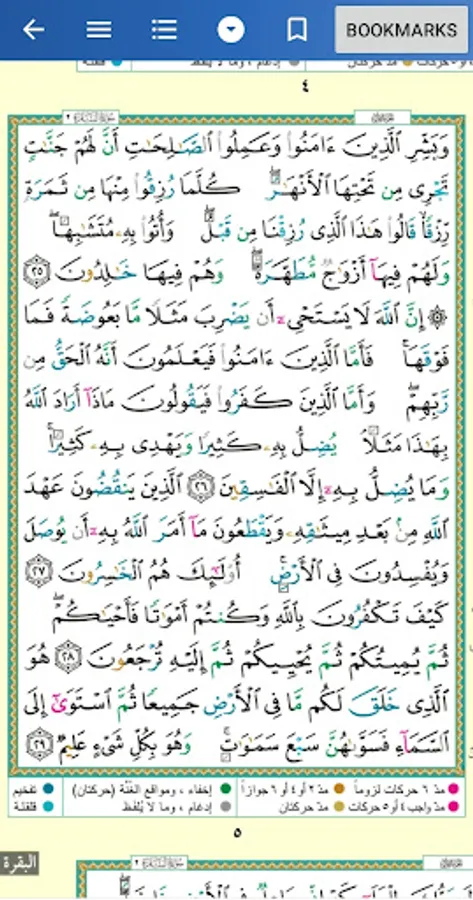 BOOKMARKS
٤
وَبَشِّرِ ٱلَّذِينَ ءَامَنُوا۟ وَعَمِلُوا۟ ٱلصَّـٰلِحَـٰتِ أَنَّ لَهُمْ جَنَّـٰتٍ
تَجْرِى مِن تَحْتِهَا ٱلْأَنْهَـٰرُ ۖ كُلَّمَا رُزِقُوا۟ مِنْهَا مِن ثَمَرَةٍ
رِّزْقًا ۙ قَالُوا۟ هَـٰذَا ٱلَّذِى رُزِقْنَا مِن قَبْلُ ۖ وَأُتُوا۟ بِهِۦ مُتَشَـٰبِهًا ۖ
وَلَهُمْ فِيهَآ أَزْوَٰجٌ مُّطَهَّرَةٌ ۖ وَهُمْ فِيهَا خَـٰلِدُونَ ﴿٢٥﴾
۞ إِنَّ ٱللَّهَ لَا يَسْتَحْىِۦٓ أَن يَضْرِبَ مَثَلًا مَّا بَعُوضَةً فَمَا
فَوْقَهَا ۚ فَأَمَّا ٱلَّذِينَ ءَامَنُوا۟ فَيَعْلَمُونَ أَنَّهُ ٱلْحَقُّ مِن
رَّبِّهِمْ ۖ وَأَمَّا ٱلَّذِينَ كَفَرُوا۟ فَيَقُولُونَ مَاذَآ أَرَادَ ٱللَّهُ
بِهَـٰذَا مَثَلًا ۘ يُضِلُّ بِهِۦ كَثِيرًا وَيَهْدِى بِهِۦ كَثِيرًا ۚ
وَمَا يُضِلُّ بِهِۦٓ إِلَّا ٱلْفَـٰسِقِينَ ﴿٢٦﴾ ٱلَّذِينَ يَنقُضُونَ عَهْدَ
ٱللَّهِ مِنۢ بَعْدِ مِيثَـٰقِهِۦ وَيَقْطَعُونَ مَآ أَمَرَ ٱللَّهُ بِهِۦٓ أَن يُوصَلَ
وَيُفْسِدُونَ فِى ٱلْأَرْضِ ۚ أُو۟لَـٰٓئِكَ هُمُ ٱلْخَـٰسِرُونَ ﴿٢٧﴾
كَيْفَ تَكْفُرُونَ بِٱللَّهِ وَكُنتُمْ أَمْوَٰتًا فَأَحْيَـٰكُمْ ۖ
ثُمَّ يُمِيتُكُمْ ثُمَّ يُحْيِيكُمْ ثُمَّ إِلَيْهِ تُرْجَعُونَ ﴿٢٨﴾ هُوَ
ٱلَّذِى خَلَقَ لَكُم مَّا فِى ٱلْأَرْضِ جَمِيعًا ثُمَّ ٱسْتَوَىٰٓ إِلَى
ٱلسَّمَآءِ فَسَوَّىٰهُنَّ سَبْعَ سَمَـٰوَٰتٍ ۚ وَهُوَ بِكُلِّ شَىْءٍ عَلِيمٌ ﴿٢٩﴾
مدّ ٦ حركات لزوماً مدّ ٢ أو ٤ أو ٦ جوازاً إخفاء ، ومواقع الغنّة (حركتان) تفخيم
مدّ واجب ٤ أو ٥ حركات مدّ حركتان إدغام ، وما لا يُلفظ قلقلة
٥
البقرة